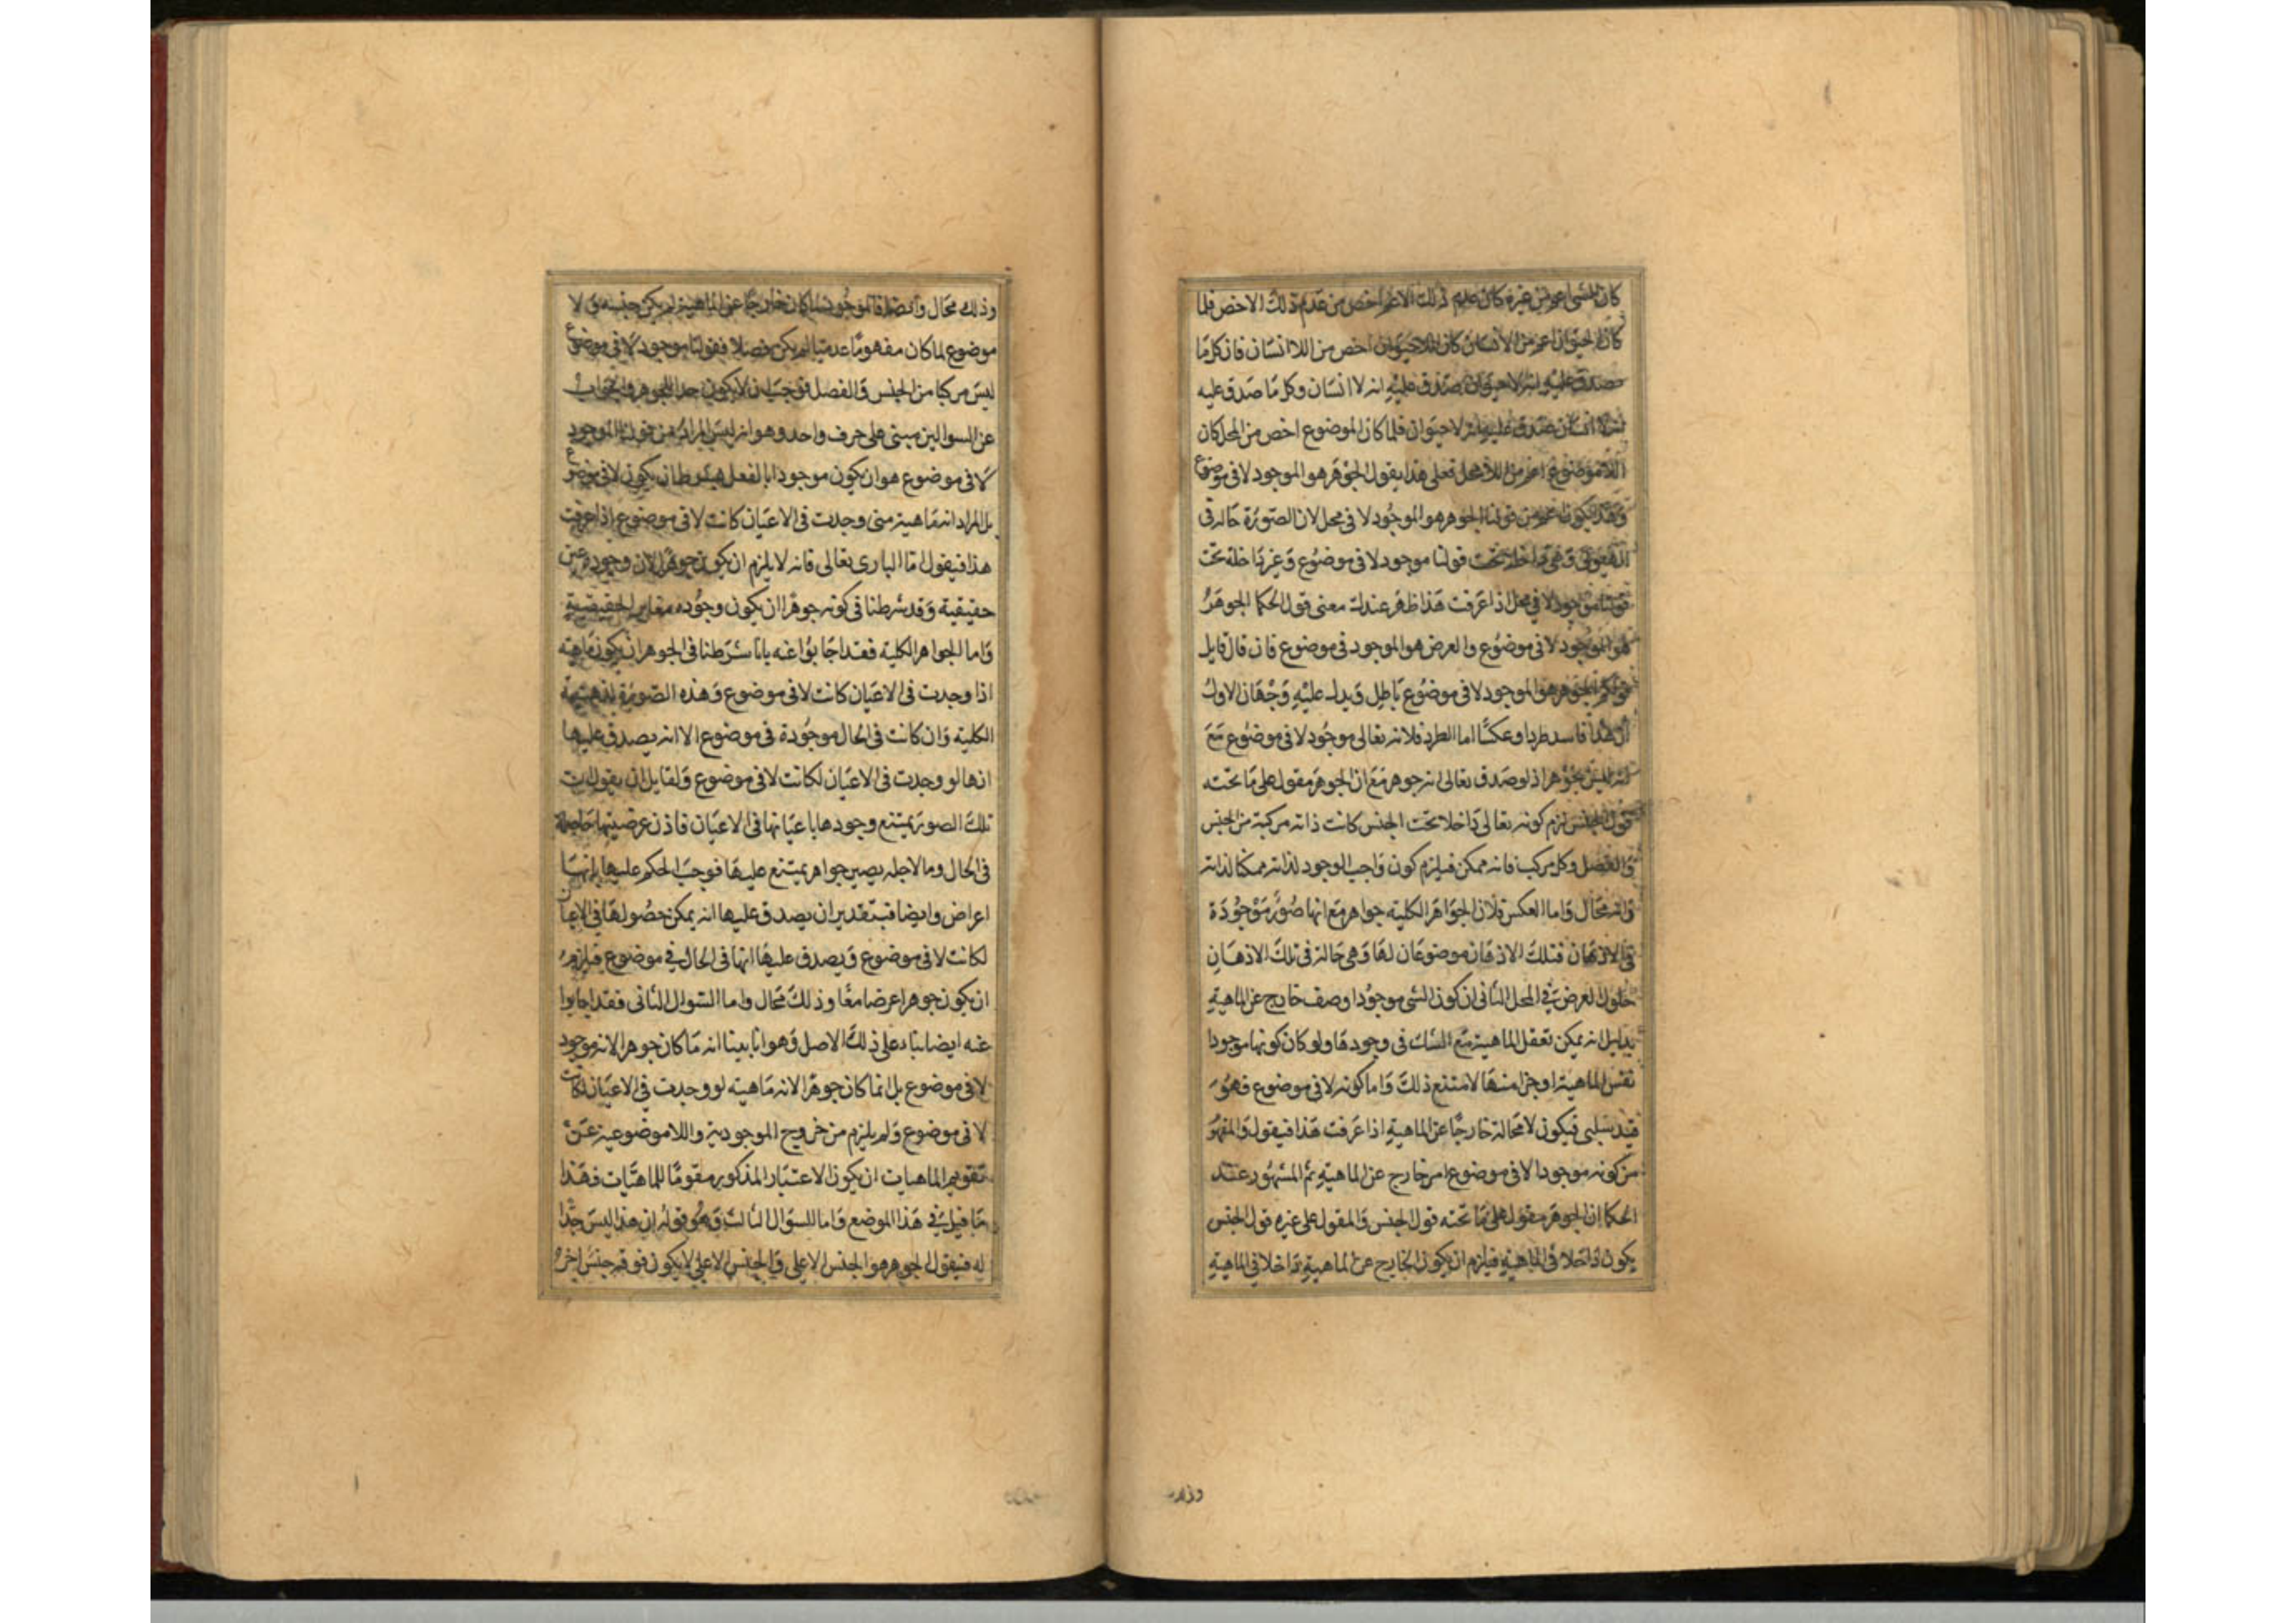 كان الشى اعم من غيره كان عدم ذلك الاعم اخص من عدم ذلك الاخص فلما
كان الحيوان اعم من الانسان كان اللاحيوان اخص من اللاانسان فان كل ما
يصدق عليه انه لا حيوان صدق عليه انه لا انسان وكل ما صدق عليه
انه لا انسان صدق عليه انه لا حيوان فلما كان الموضوع اخص من المحل كان
اللاموضوع اعم من اللامحل فعلى هذا يقول الجوهر هو الموجود لا فى موضوع
وهذا يكون اعم من قولنا الجوهر هو الموجود لا فى محل لان الصورة حالة فى
الهيولى وهى داخلة تحت قولنا موجود لا فى موضوع وغير داخلة تحت
قولنا موجود لا فى محل اذا عرفت هذا ظهر عندك معنى قول الحكما الجوهر
هو الموجود لا فى موضوع والعرض هو الموجود فى موضوع فان قال قايل
قولكم الجوهر هو الموجود لا فى موضوع باطل ويدل عليه وجهان الاول
ان هذا فاسد طردا وعكسا اما الطرد فلانه تعالى موجود لا فى موضوع مع
انه ليس بجوهر اذ لو صدق تعالى انه جوهر مع ان الجوهر مقول على ما تحته
قول الجنس لزم كونه تعالى داخلا تحت الجنس كانت ذاته مركبة من الجنس
والفصل وكل مركب فانه ممكن فيلزم كون واجب الوجود لذاته ممكنا لذاته
وانه محال واما العكس فلان الجواهر الكلية جواهر مع انها صور موجودة
فى الاذهان فتلك الاذهان موضوعان لها وهى حالة فى تلك الاذهان
حلول العرض فى المحل الثانى ان كون الشى موجودا وصف خارج عن الماهية
بدليل انه يمكن تعقل الماهية مع الشك فى وجودها ولو كان كونها موجودا
نفس الماهية او جزا منها لامتنع ذلك واما كونه لا فى موضوع فهو
قيد سلبى فيكون لا محالة خارجا عن الماهية اذا عرفت هذا فيقول والمفهو
من كونه موجودا لا فى موضوع امر خارج عن الماهية ثم المشهور عند
الحكما ان الجوهر مقول على ما تحته قول الجنس والمقول على غيره قول الجنس
يكون داخلا فى الماهية فيلزم ان يكون الخارج عن الماهية داخلا فى الماهية
وذلك
وذلك محال وايضا فالموجود لما كان خارجا عن الماهية لم يكن جنسا و لا
موضوع لما كان مفهوما عدميا لم يكن فصلا فقولنا موجود لا فى موضوع
ليس مركبا من الجنس والفصل فوجب ان لا يكون حدا للجوهر والجواب
عن السوالين مبنى على حرف واحد وهو انه ليس المراد من قولنا الموجود
لا فى موضوع هو ان يكون موجودا بالفعل بشرط ان يكون لا فى موضوع
بل المراد انه ماهية متى وجدت فى الاعيان كانت لا فى موضوع اذا عرفت
هذا فيقول اما البارى تعالى فانه لا يلزم ان يكون جوهرا لان وجوده عين
حقيقية وقد شرطنا فى كونه جوهرا ان يكون وجوده مغاير الحقيقية
واما الجواهر الكلية فقد اجابوا عنه بانا شرطنا فى الجوهر ان يكون ماهية
اذا وجدت فى الاعيان كانت لا فى موضوع وهذه الصورة الذهنية
الكلية وان كانت فى الحال موجودة فى موضوع الا انه يصدق عليها
انها لو وجدت فى الاعيان لكانت لا فى موضوع ولقايل ان يقول ان
تلك الصور يمتنع وجودها باعيانها فى الاعيان فاذن عرضيتها حاصلة
فى الحال وما لاجله يصير جواهر يمتنع عليها فوجب الحكم عليها بانها
اعراض وايضا فبتقدير ان يصدق عليها انه يمكن حصولها فى الاعيان
لكانت لا فى موضوع ويصدق عليها انها فى الحال فى موضوع فيلزم
ان يكون جوهرا عرضا معا وذلك محال واما السوال الثانى فقد اجابوا
عنه ايضا بناء على ذلك الاصل وهو انا بينا انه ما كان جوهرا لانه موجود
لا فى موضوع بل انما كان جوهرا لانه ماهية لو وجدت فى الاعيان لكانت
لا فى موضوع ولم يلزم من خروج الموجودية واللاموضوعية عن
تقويم الماهيات ان يكون الاعتبار المذكور مقوما للماهيات فهذا
ما قيل فى هذا الموضع واما السوال الثالث وهو قوله ان هذا ليس حدا
له فيقول الجوهر هو الجنس الاعلى والجنس الاعلى لا يكون فوقه جنس اخر